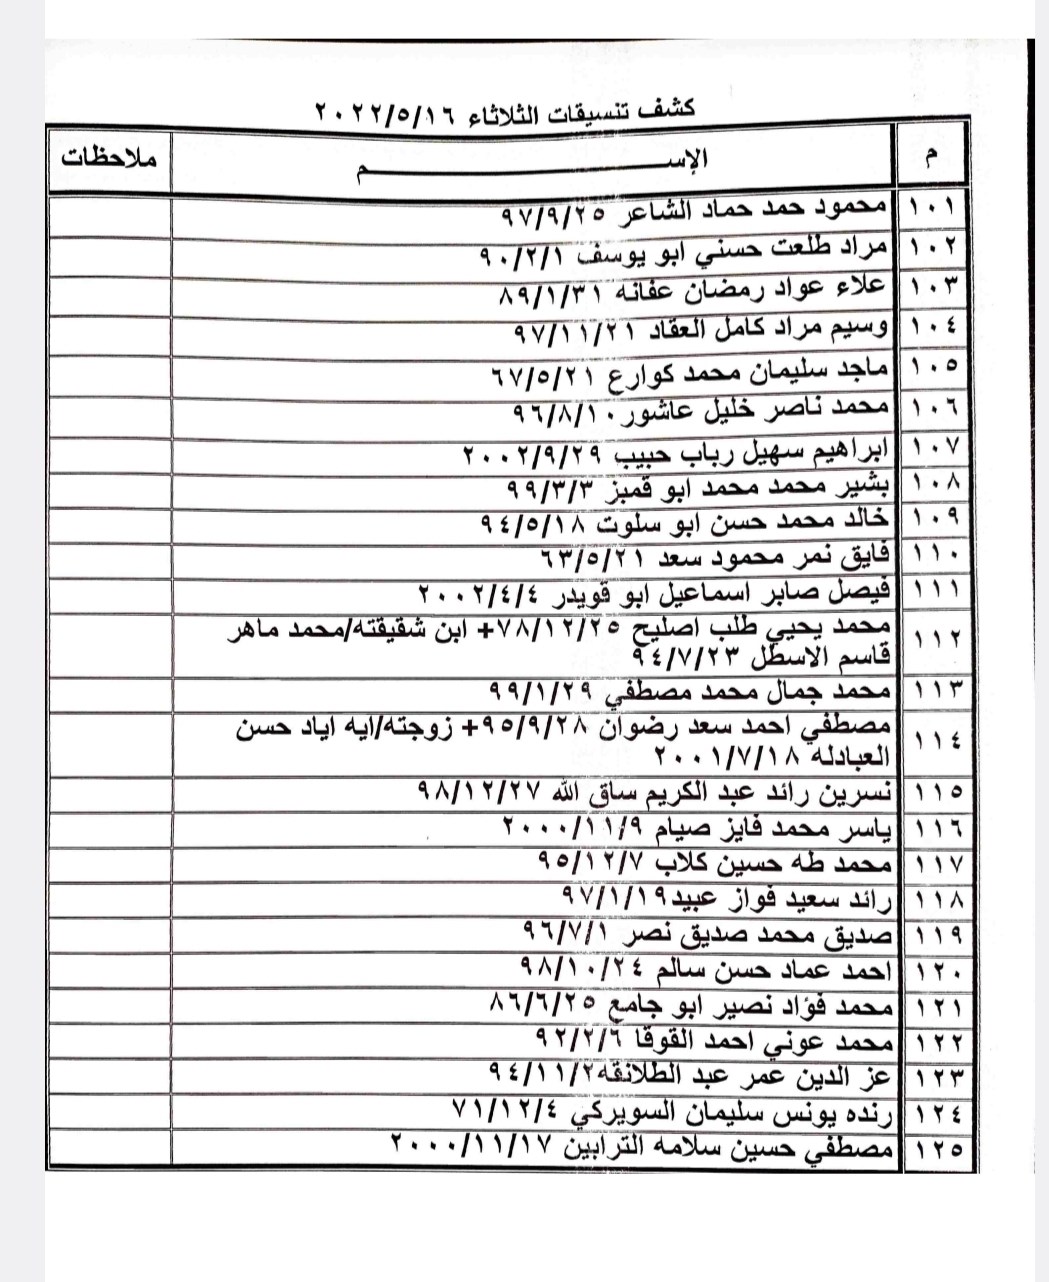 كشف تنسيقات الثلاثاء ٢٠٢٢/٥/١٦
م الإســـــــــم ملاحظات
١٠١ محمود حمد حماد الشاعر ٩٧/٩/٢٥
١٠٢ مراد طلعت حسني ابو يوسف ٩٠/٢/١
١٠٣ علاء عواد رمضان عفانه ٨٩/١/٣١
١٠٤ وسيم مراد كامل العقاد ٩٧/١١/٢١
١٠٥ ماجد سليمان محمد كوارع ٦٧/٥/٢١
١٠٦ محمد ناصر خليل عاشور ٩٦/٨/١٠
١٠٧ ابراهيم سهيل رباب حبيب ٢٠٠٢/٩/٢٩
١٠٨ بشير محمد محمد ابو قمبز ٩٩/٣/٣
١٠٩ خالد محمد حسن ابو سلوت ٩٤/٥/١٨
١١٠ فايق نمر محمود سعد ٦٣/٥/٢١
١١١ فيصل صابر اسماعيل ابو قويدر ٢٠٠٢/٤/٤
١١٢ محمد يحيي طلب اصليح ٧٨/١٢/٢٥+ ابن شقيقته/محمد ماهر
قاسم الاسطل ٩٤/٧/٢٣
١١٣ محمد جمال محمد مصطفي ٩٩/١/٢٩
١١٤ مصطفي احمد سعد رضوان ٩٥/٩/٢٨+ زوجته/ايه اياد حسن
العبادله ٢٠٠١/٧/١٨
١١٥ نسرين رائد عبد الكريم ساق الله ٩٨/١٢/٢٧
١١٦ ياسر محمد فايز صيام ٢٠٠٠/١١/٩
١١٧ محمد طه حسين كلاب ٩٥/١٢/٧
١١٨ رائد سعيد فواز عبيد٩٧/١/١٩
١١٩ صديق محمد صديق نصر ٩٦/٧/١
١٢٠ احمد عماد حسن سالم ٩٨/١٠/٢٤
١٢١ محمد فؤاد نصير ابو جامع ٨٦/٦/٢٥
١٢٢ محمد عوني احمد القوقا ٩٢/٢/٦
١٢٣ عز الدين عمر عبد الطلانقه٩٤/١١/٢
١٢٤ رنده يونس سليمان السويركي ٧١/١٢/٤
١٢٥ مصطفي حسين سلامه الترابين ٢٠٠٠/١١/١٧